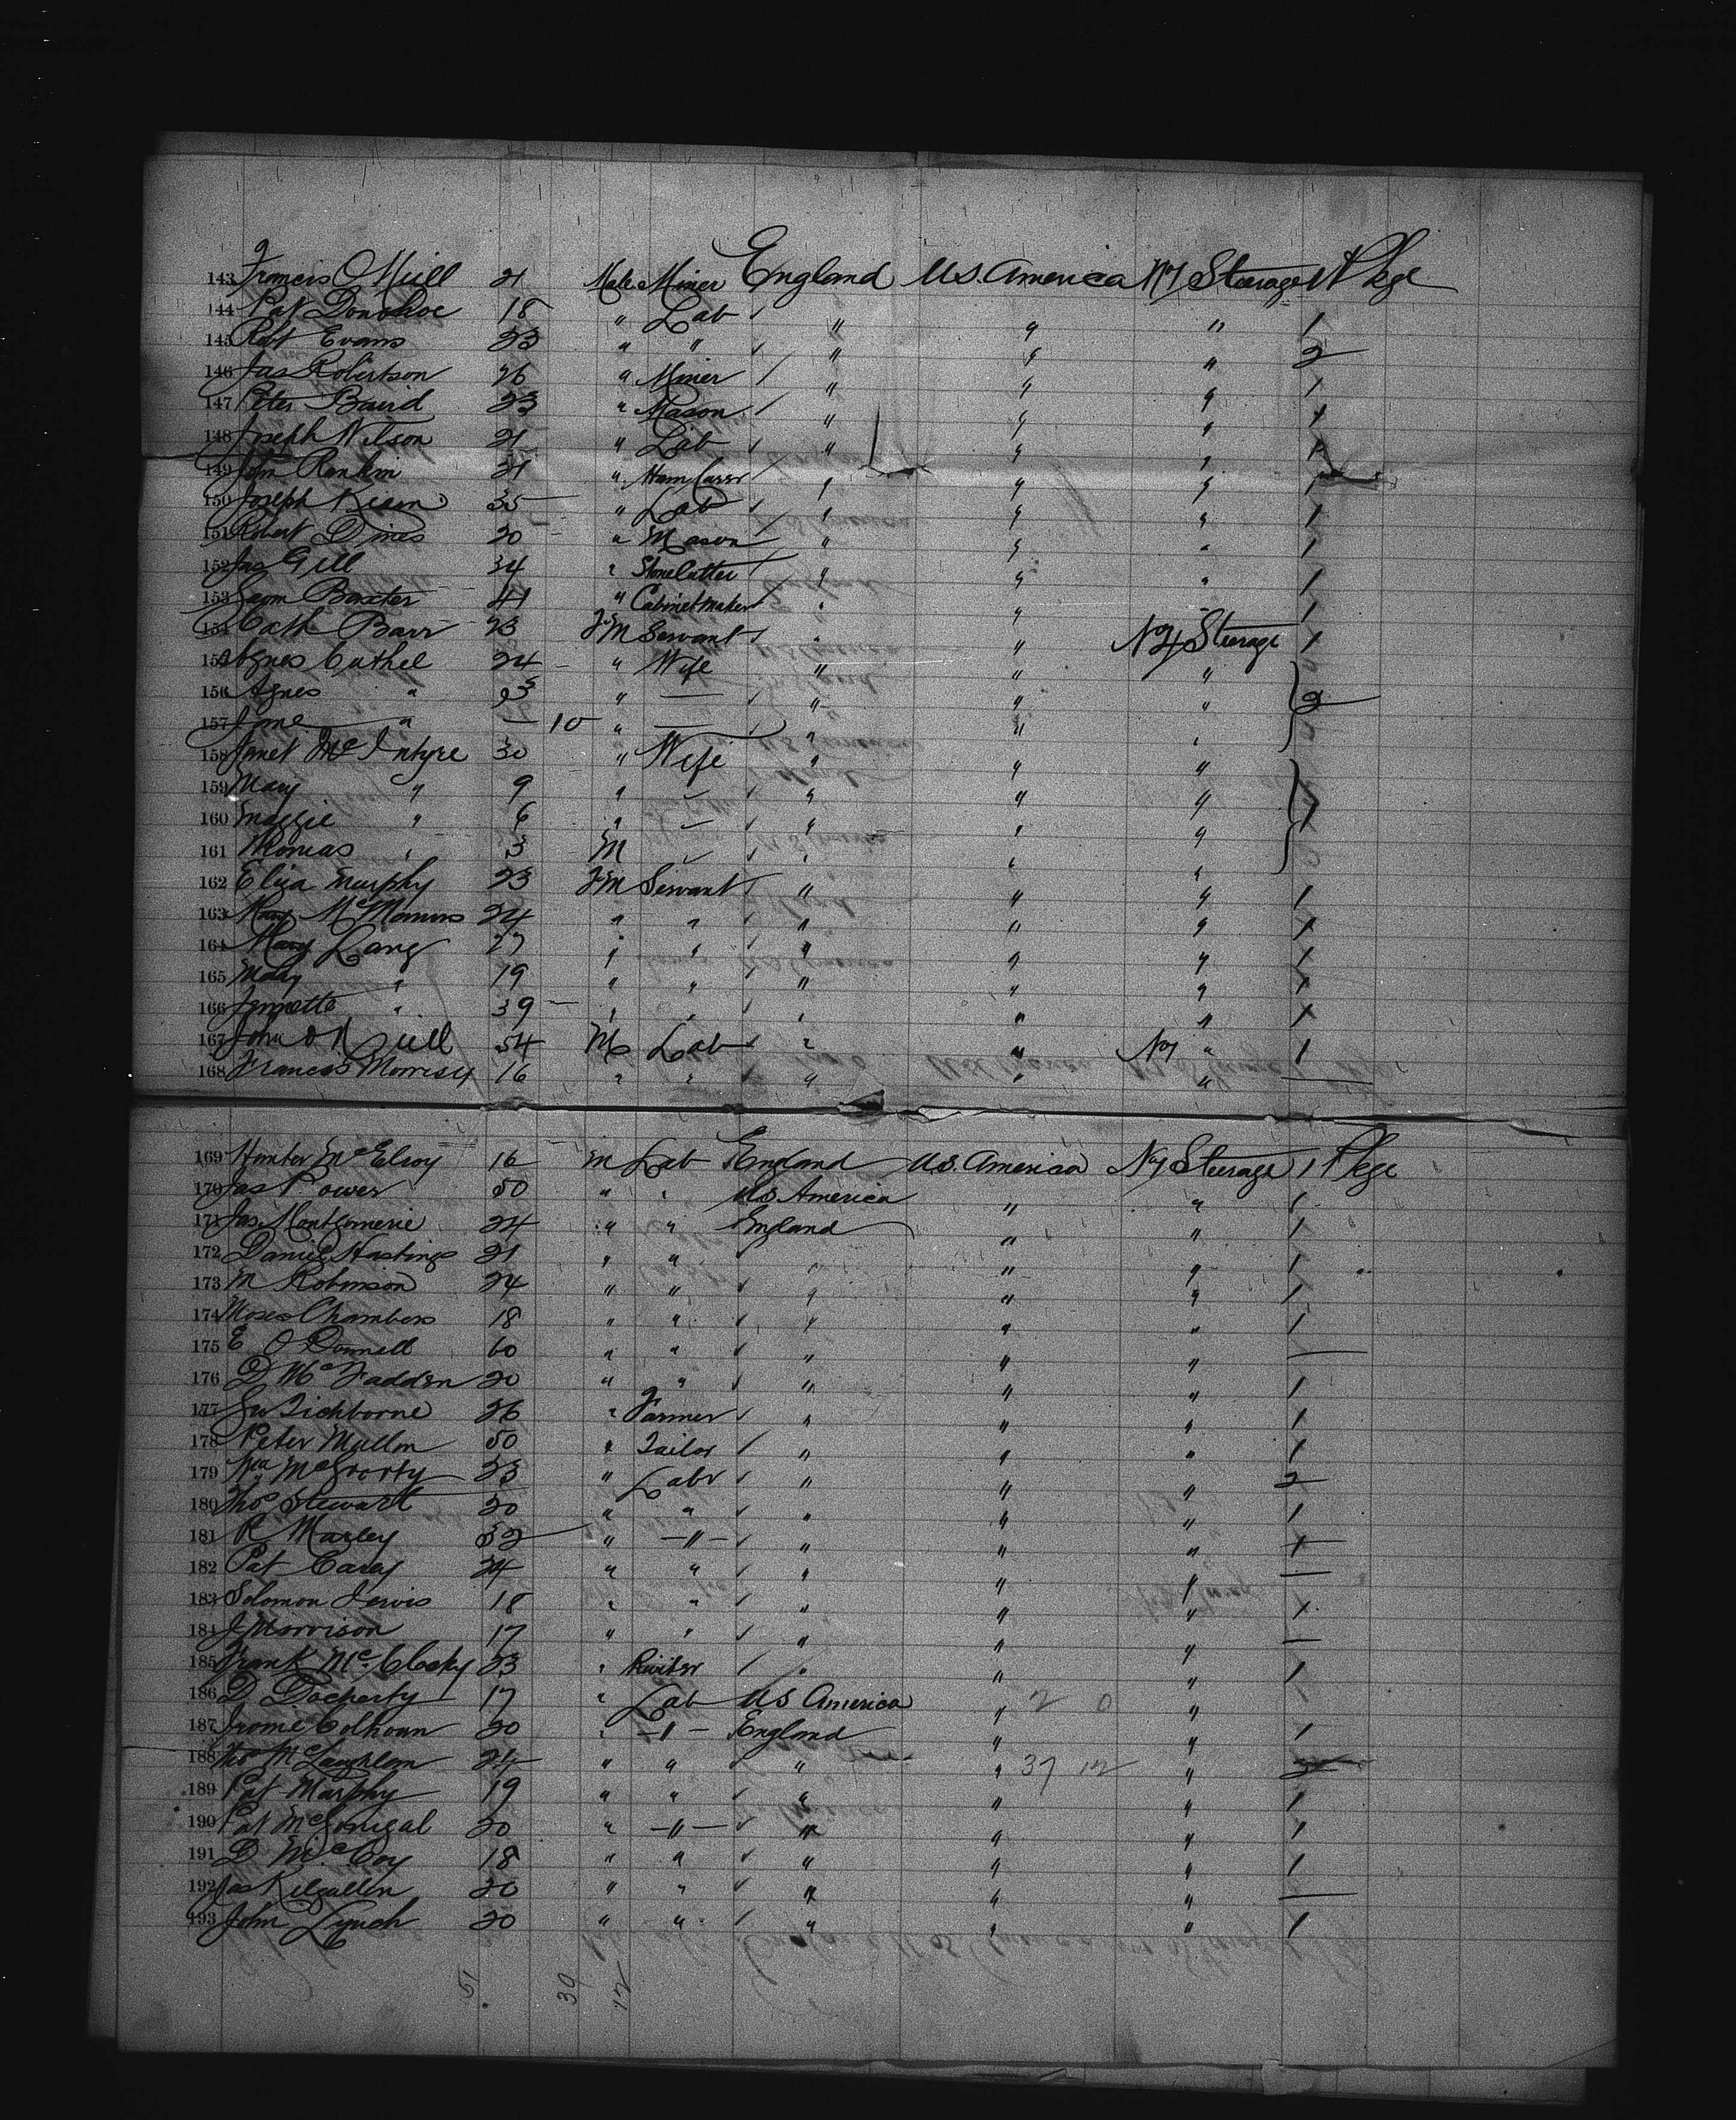 143 Francis O Neill 21 Male Miner England U.S. America No 1 Steerage 1 Pkge
144 Pat Donohoe 18 " Lab " " " 1
145 Robt Evans 23 " " " " " 2
146 Jas Robertson 26 " Miner " " " 1
147 Peter Baird 23 " Mason " " " 1
148 Joseph Wilson 21 " Lab " " " 1
149 John Rankin 21 " " " " 1
150 Joseph Kean 35 " Lab " " " 1
151 Robert Dines 20 " Mason " " " 1
152 Jas Gill 34 " Stonecutter " " " 1
153 Baxter 41 " Cabinetmaker " " " 1
154 Cath Barr 23 FM Servant " " No 4 Steerage 1
155 Agnes Cathel 24 " Wife " " "
156 Agnes " " — " " " 2
157 Jane " — 10 " — " " "
158 Janet McIntyre 30 " Wife " " "
159 Mary " 9 " — " " "
160 Maggie " 6 " — " " " 1
161 Thomas " 3 M — " " "
162 Eliza Murphy 23 FM Servant " " " 1
163 Mary McManus 24 " " " " " 1
164 Mary Lang 27 " " " " " 1
165 Mary " 19 " " " " " 1
166 Jennette " 39 " " " " " 1
167 John O Neill 54 M Lab " " No 1 " 1
168 Francis Morrisy 16 " " " " " —
169 Hunter McElroy 16 M Lab England U.S. America No 1 Steerage 1 Pkge
170 Jas Power 50 " " U.S. America " " 1
171 Jas Montgomerie 24 " " England " " 1
172 Daniel Hastings 21 " " " " " 1
173 M Robinson 24 " " " " " 1
174 Moses Chambers 18 " " " " " 1
175 E O Donnell 60 " " " " " —
176 D McFadden 20 " " " " " 1
177 Tichborne 26 " Farmer " " " 1
178 Peter Mullon 50 " Tailor " " " 1
179 Wm McGrorty 23 " Labr " " " 2
180 Thos Stewart 20 " " " " " 1
181 R Marley 32 " —"— " " " 1
182 Pat Carey 24 " " " " " —
183 Solomon Jervis 18 " " " " " 1
184 J Morrison 17 " " " " " —
185 Frank McClosky 23 " Riviter " " " 1
186 D Docherty 17 " Lab US America " 2 0 "
187 Jrome Colhoun 20 " —"— England " " 1
188 Thos McLaughlan 24 " " " " 37 12 "
189 Pat Murphy 19 " " " " " 1
190 Pat McGonigal 20 " —"— " " " 1
191 D McCoy 18 " " " " " 1
192 Jas Kilgallen 20 " " " " " —
193 John Lynch 20 " " " " " 1
51 39 12